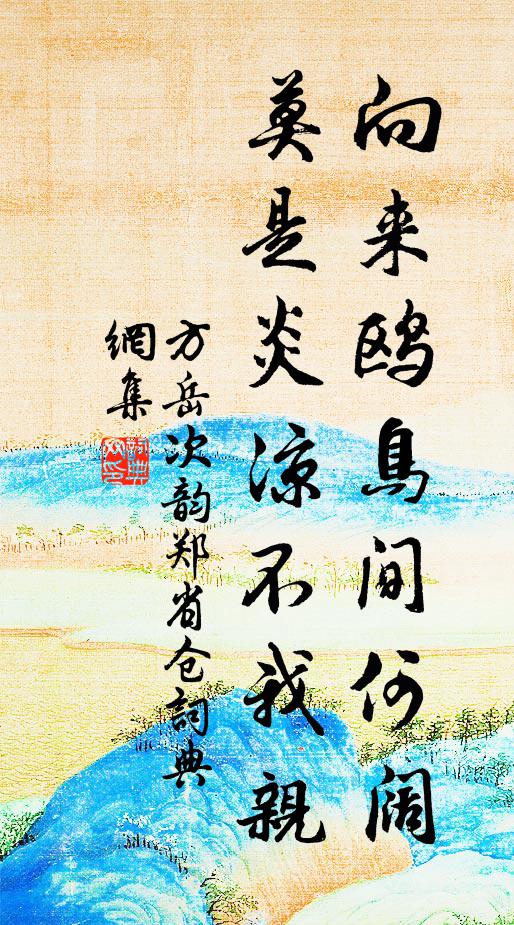 向来鸥鳥间何阔
莫是炎凉不我親
方岳次韵郑省仓詞典
網集